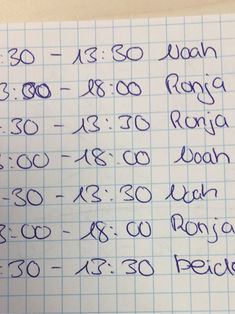 :30 - 13:30 Noah
3:00 - 18:00 Ronja
:30 - 13:30 Ronja
:00 - 18:00 Noah
-30 - 13:30 Noah
3:00 - 18:00 Ronja
:30 - 13:30 beide